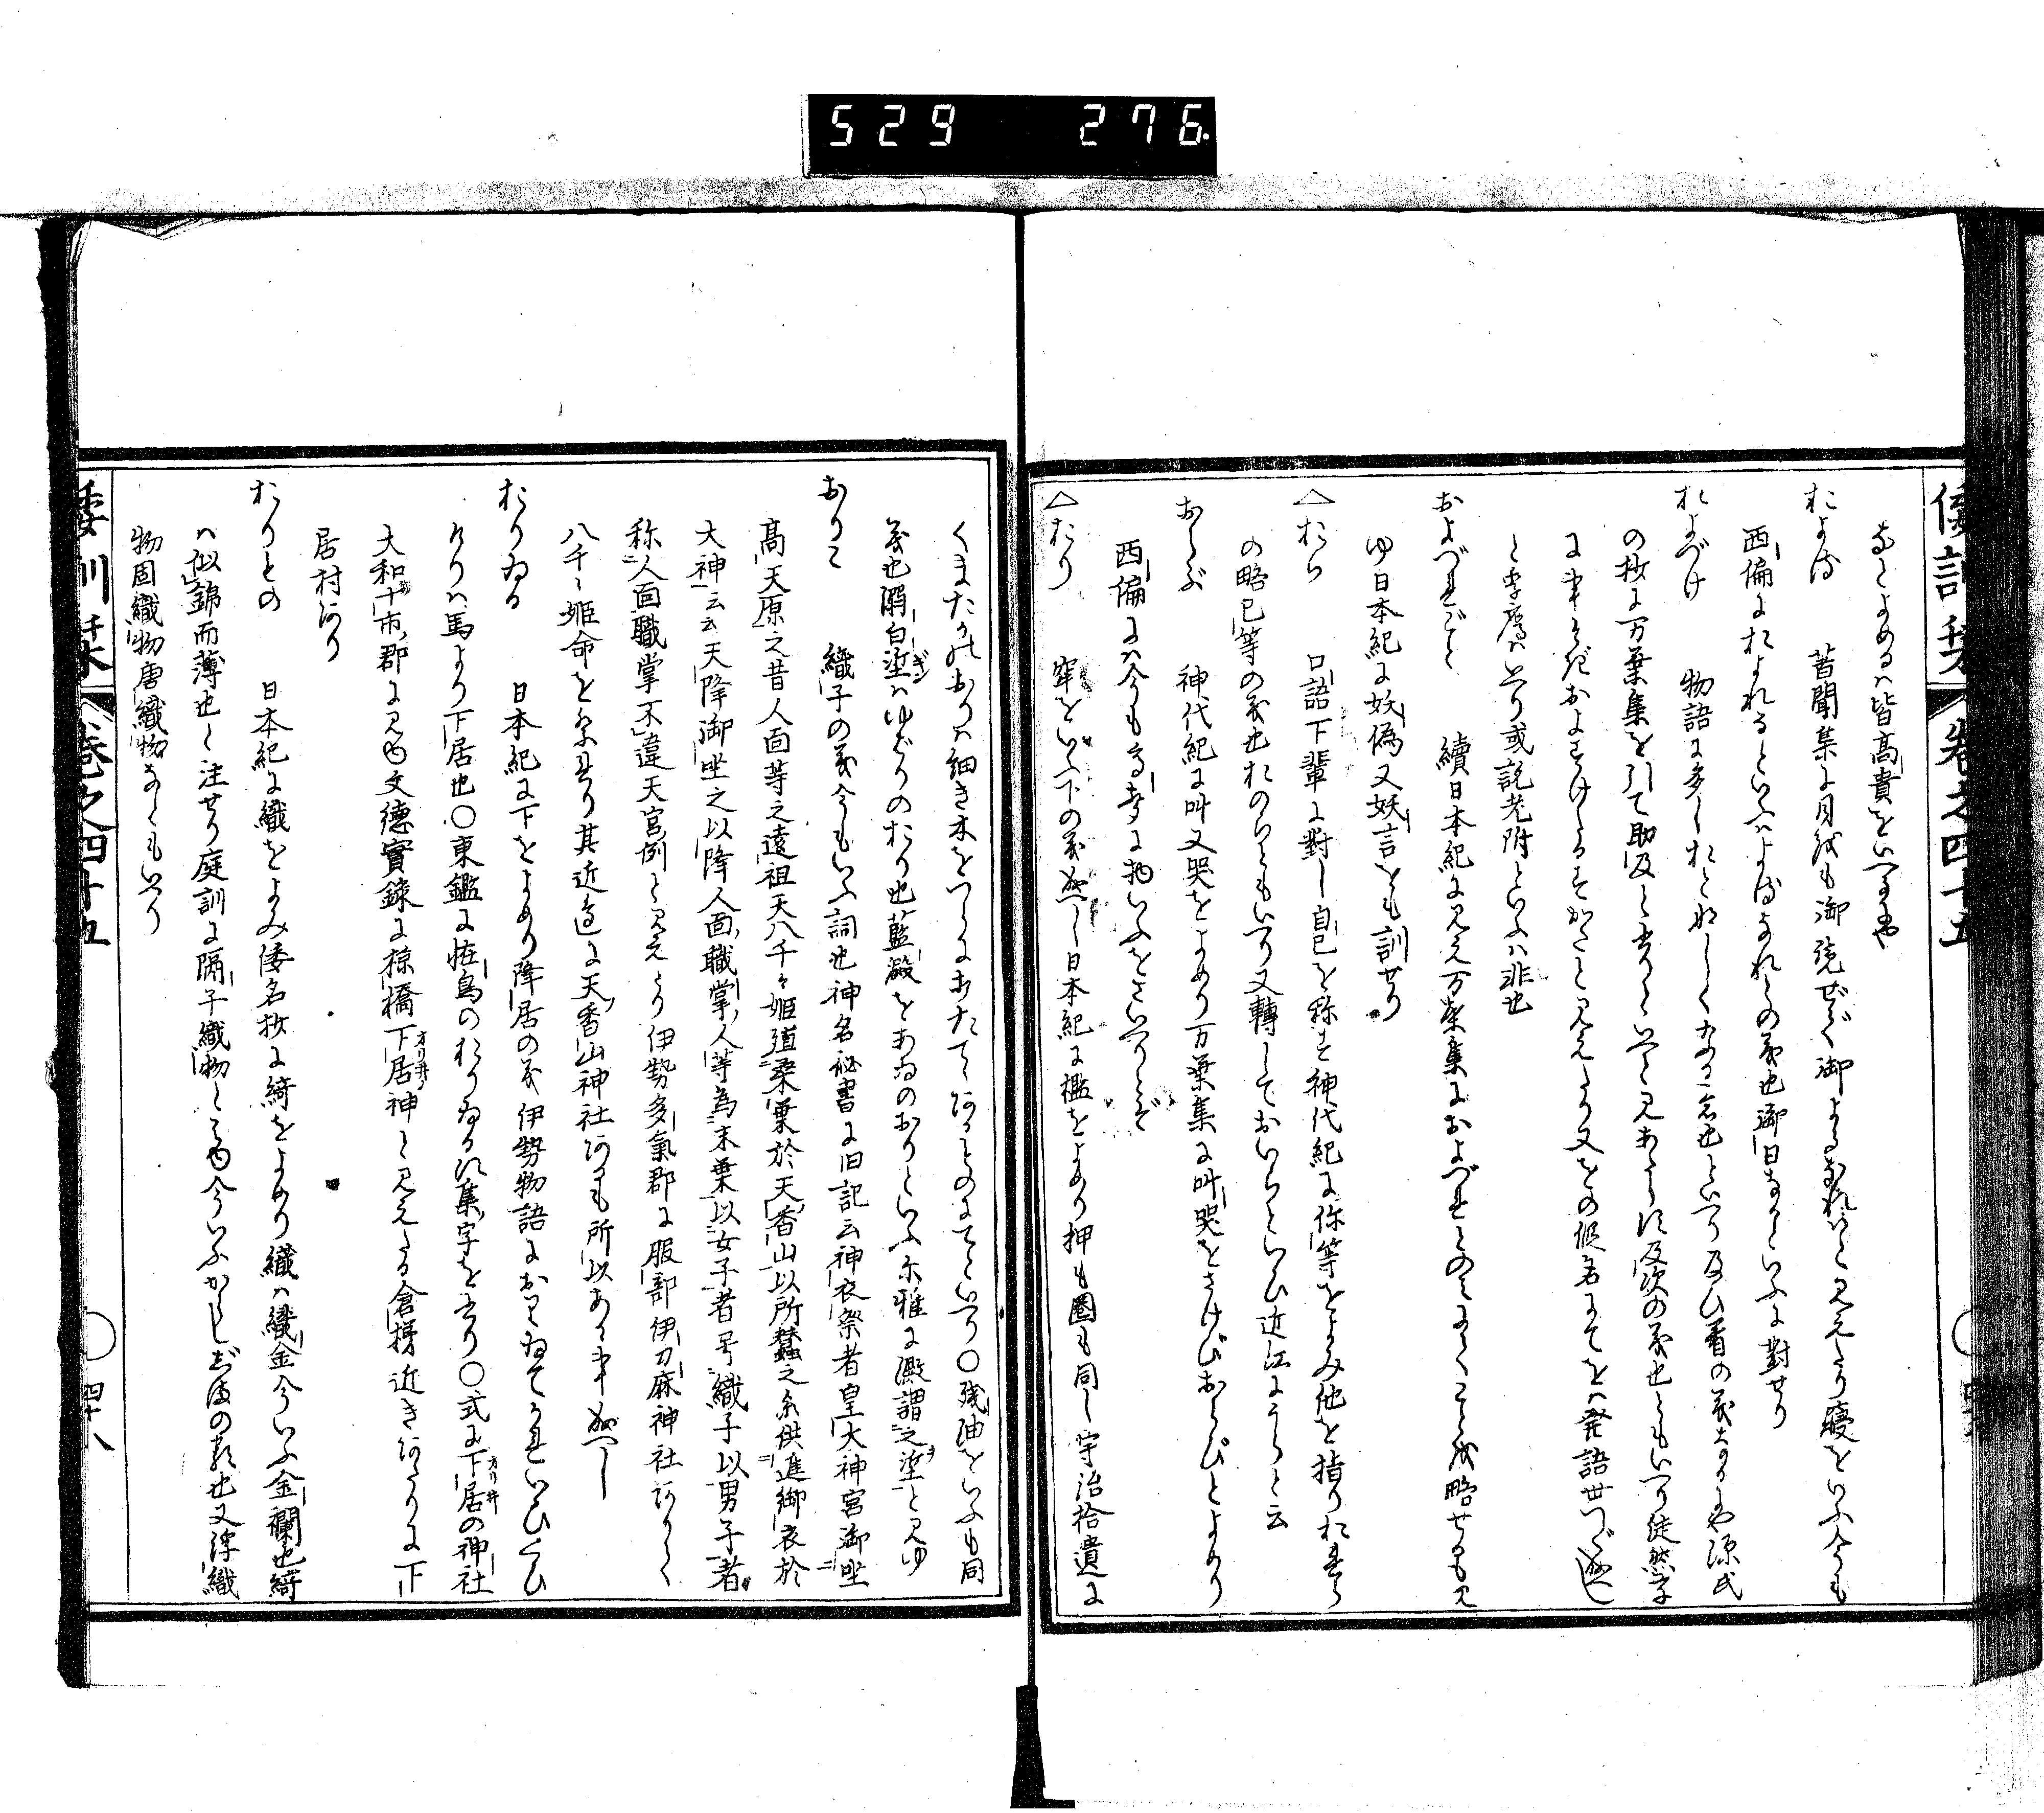 529 276
倭訓栞 卷之四十五
なとよめるハ皆高貴をいへる也
およる 昔聞集に月夜も御覧ぜで御よるなれバと見えたり寝をいふ今も
西偏におよれるといふハよるなれるの義也御日なるといふに對せり
およづけ 物語に多しおとなしくなる意也といへり及び着の義なるにや源氏
の抄に万葉集を引て助及と書りといへと見あたらず及次の義也ともいへり徒然草
に事そぎおよすけたるすがたと見えたり又をの假名にてをハ発語せつく成へし
と季鷹ハいへり或説老附といふハ非也
およづれごと 續日本紀に見え万葉集およづれとのみよみてことを略せるも見
ゆ日本紀に妖偽又妖言をも訓せり
△おら 口語下輩に對し自己を稱す神代紀に你等をよみ他を指りおれら
の略已等の義也おのらともいへり又轉しておいらといひ近江にうらと云
おらぶ 神代紀に叫又哭をよめり万葉集に叫哭をさけびおらびとよめり
西偏にハ今も高聲に物いふをさいへりとぞ
△おり 牢をいふ下の義成へし日本紀に檻をよめり押も圏も同し宇治拾遺に
くまたかのおりハ細き木をつらにあたてゝ
〇残油をいふも同
義也溺白ハゆどりのおり也藍澱をあゐのおりといふ尓雅に澱謂之垽と見ゆ
おりこ 織子の義今もいふ詞也神名秘書に旧記云神衣祭者皇大神宮御坐
高天原之昔人面等之遠祖天八千々姫殖桒葉於天香山以所蠶之糸供進御衣於
大神云云天降御坐之以降人面職掌人等為末葉以女子者号織子以男子者
称人面職掌不違天宮例と見えたり伊勢多氣郡に服部伊刀麻神社ありて
八千々姫命を祭れり其近邉に天香山神社あるも所以ある事成へし
おりゐる 日本紀に下をよめり降居の義伊勢物語におりゐてかれいひくひ
けりハ馬より下居也〇東鑑に怪鳥のおりゐるに集字を書り〇式に下居の神社
大和十市郡に見ゆ文德實録に椋橋下居神と見えたる倉梯近きあたりに下
居村あり
おりもの 日本紀に織をよみ倭名抄に綺をよめり織ハ織金今いふ金襴也綺
ハ似錦而薄也と注せり庭訓に隔子織物と見ゆ今いふかうしじまの類也又浮織
物固織物唐織物なともいへり
倭訓栞 卷之四十五 四十八